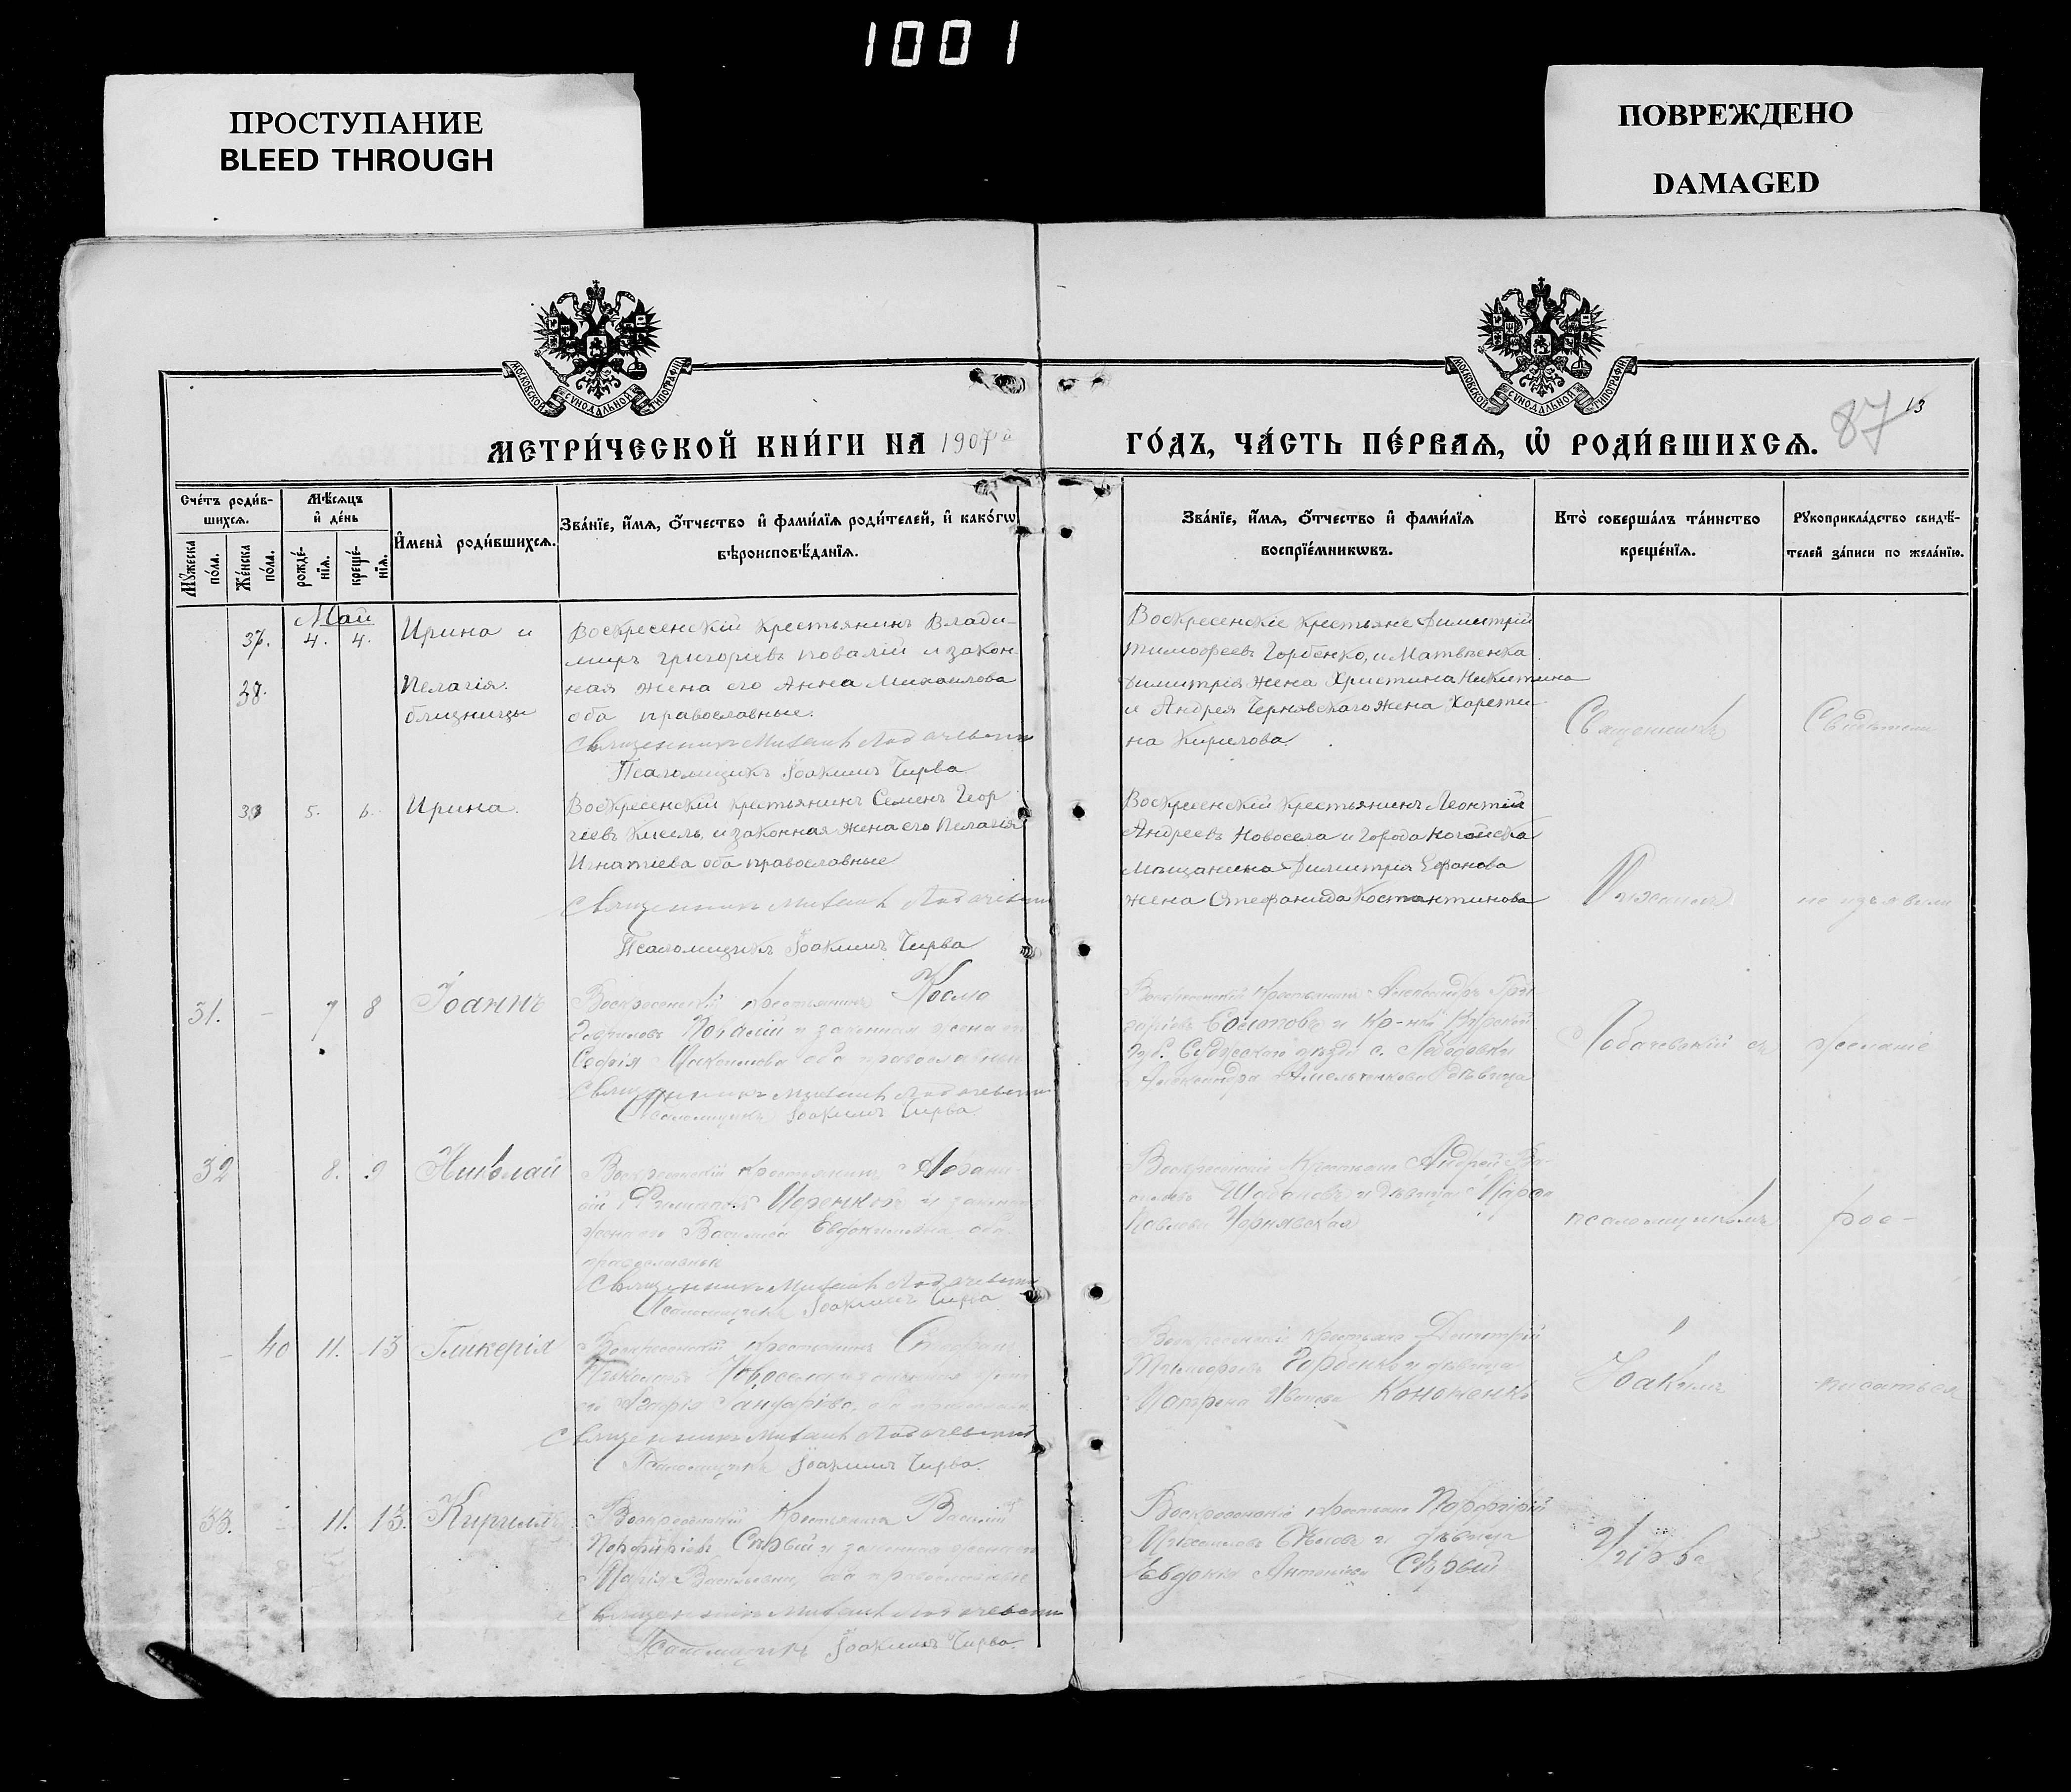 1001
ПРОСТУПАНИЕ
BLEED THROUGH
ПОВРЕЖДЕНО
DAMAGED
МОСКОВСКОЙ СѴНОДАЛЬНОЙ ТИПОГРАФІИ
МОСКОВСКОЙ СѴНОДАЛЬНОЙ ТИПОГРАФІИ
87
13
МЕТРИ́ЧЕСКОЙ КНИ́ГИ НА 1907й
ГО́ДЪ, ЧА́СТЬ ПЕ́РВАѦ, Ѡ҆ РОДИ́ВШИХСѦ.
Сче́тъ роди́в-
шихсѧ.
Мѣ́сѧцъ
и҆ де́нь
Мꙋ́жеска
по́ла.
Же́нска
по́ла.
рожде́-
нїѧ.
креще́-
нїѧ.
И҆мена̀ роди́вшихсѧ.
Зва́нїе, и҆́мѧ, о҆́тчество и҆ фами́лїѧ роди́телей, и҆ како́гѡ
вѣроисповѣ́данїѧ.
Зва́нїе, и҆́мѧ, о҆́тчество и҆ фами́лїѧ
воспрїе́мникѡвъ.
Кто̀ соверша́лъ та́инство
креще́нїѧ.
Рꙋкоприкла́дство свидѣ́-
телей за́писи по жела́нїю.
Май
37. 4. 4. Ирина и
38. Пелагія.
близницы
Воскресенскій крестьянинъ Влади-
миръ Григоріевъ Ковалій и закон-
ная жена его Анна Михаилова
оба православные.
Священникъ Михаилъ Лобачевскій
Псаломщикъ Іоакимъ Чирва
Воскресенскіе крестьяне Димитрій
Тимофеевъ Горбенко, и Матвѣенка
Димитрія жена Христина Никитина
и Андрея Чернявскаго жена Харети-
на Кирилова.
Священникъ
Свидѣтели
39 5. 6. Ирина.
Воскресенскій крестьянинъ Семенъ Геор
гіевъ Кисель, и законная жена его Пелагія
Игнатіева оба православные
Священникъ Михаилъ Лобачевскій
Псаломщикъ Іоакимъ Чирва
Воскресенскій крестьянинъ Леонтій
Андреевъ Новосела и города Ногайска
Мѣщанина Димитрія Ефанова
жена Стефанида Костантинова
не изъявили
31. - 7 8 Іоаннъ
Воскресенскій крестьянинъ Косма
Ковалій и законная жена его
Софія оба православные
Священникъ Михаилъ Лобачевскій
Псаломщикъ Іоакимъ Чирва.
Воскресенскій крестьянинъ Александръ Гри
и Курской
губ. Суджескаго уѣзда с.
Александра дѣвица
Лобачевскій съ
желаніе
32 8. 9 Николай
Воскресенскій крестьянинъ
и законная
жена его Евдокимова оба
православные
Священникъ Михаилъ Лобачевскій
Псаломщикъ Іоакимъ Чирва
Воскресенскіе крестьяне Андрей Ва-
и дѣвица
Павлова Чернявская
псаломщикомъ
рос-
- 40 11. 13 Гликерія
Воскресенскій крестьянинъ Стефанъ
Новосела и законная жена
его Агафія оба православные
Священникъ Михаилъ Лобачевскій
Псаломщикъ Іоакимъ Чирва.
Воскресенскіе крестьяне Димитрій
Тимофеевъ Горбенко и дѣвица
Матрона Иванова Кононенко
Іоакимъ
писаться
33. 11. 13. Кирилъ
Воскресенскій крестьянинъ Василій
Порфиріевъ Сѣрый и законная жена его
Марія Васильевна, оба православные
Священникъ Михаилъ Лобачевскій
Псаломщикъ Іоакимъ Чирва.
Воскресенскіе крестьяне Порфирій
и дѣвица
Евдокія Антоніева Сѣрый
Чирва